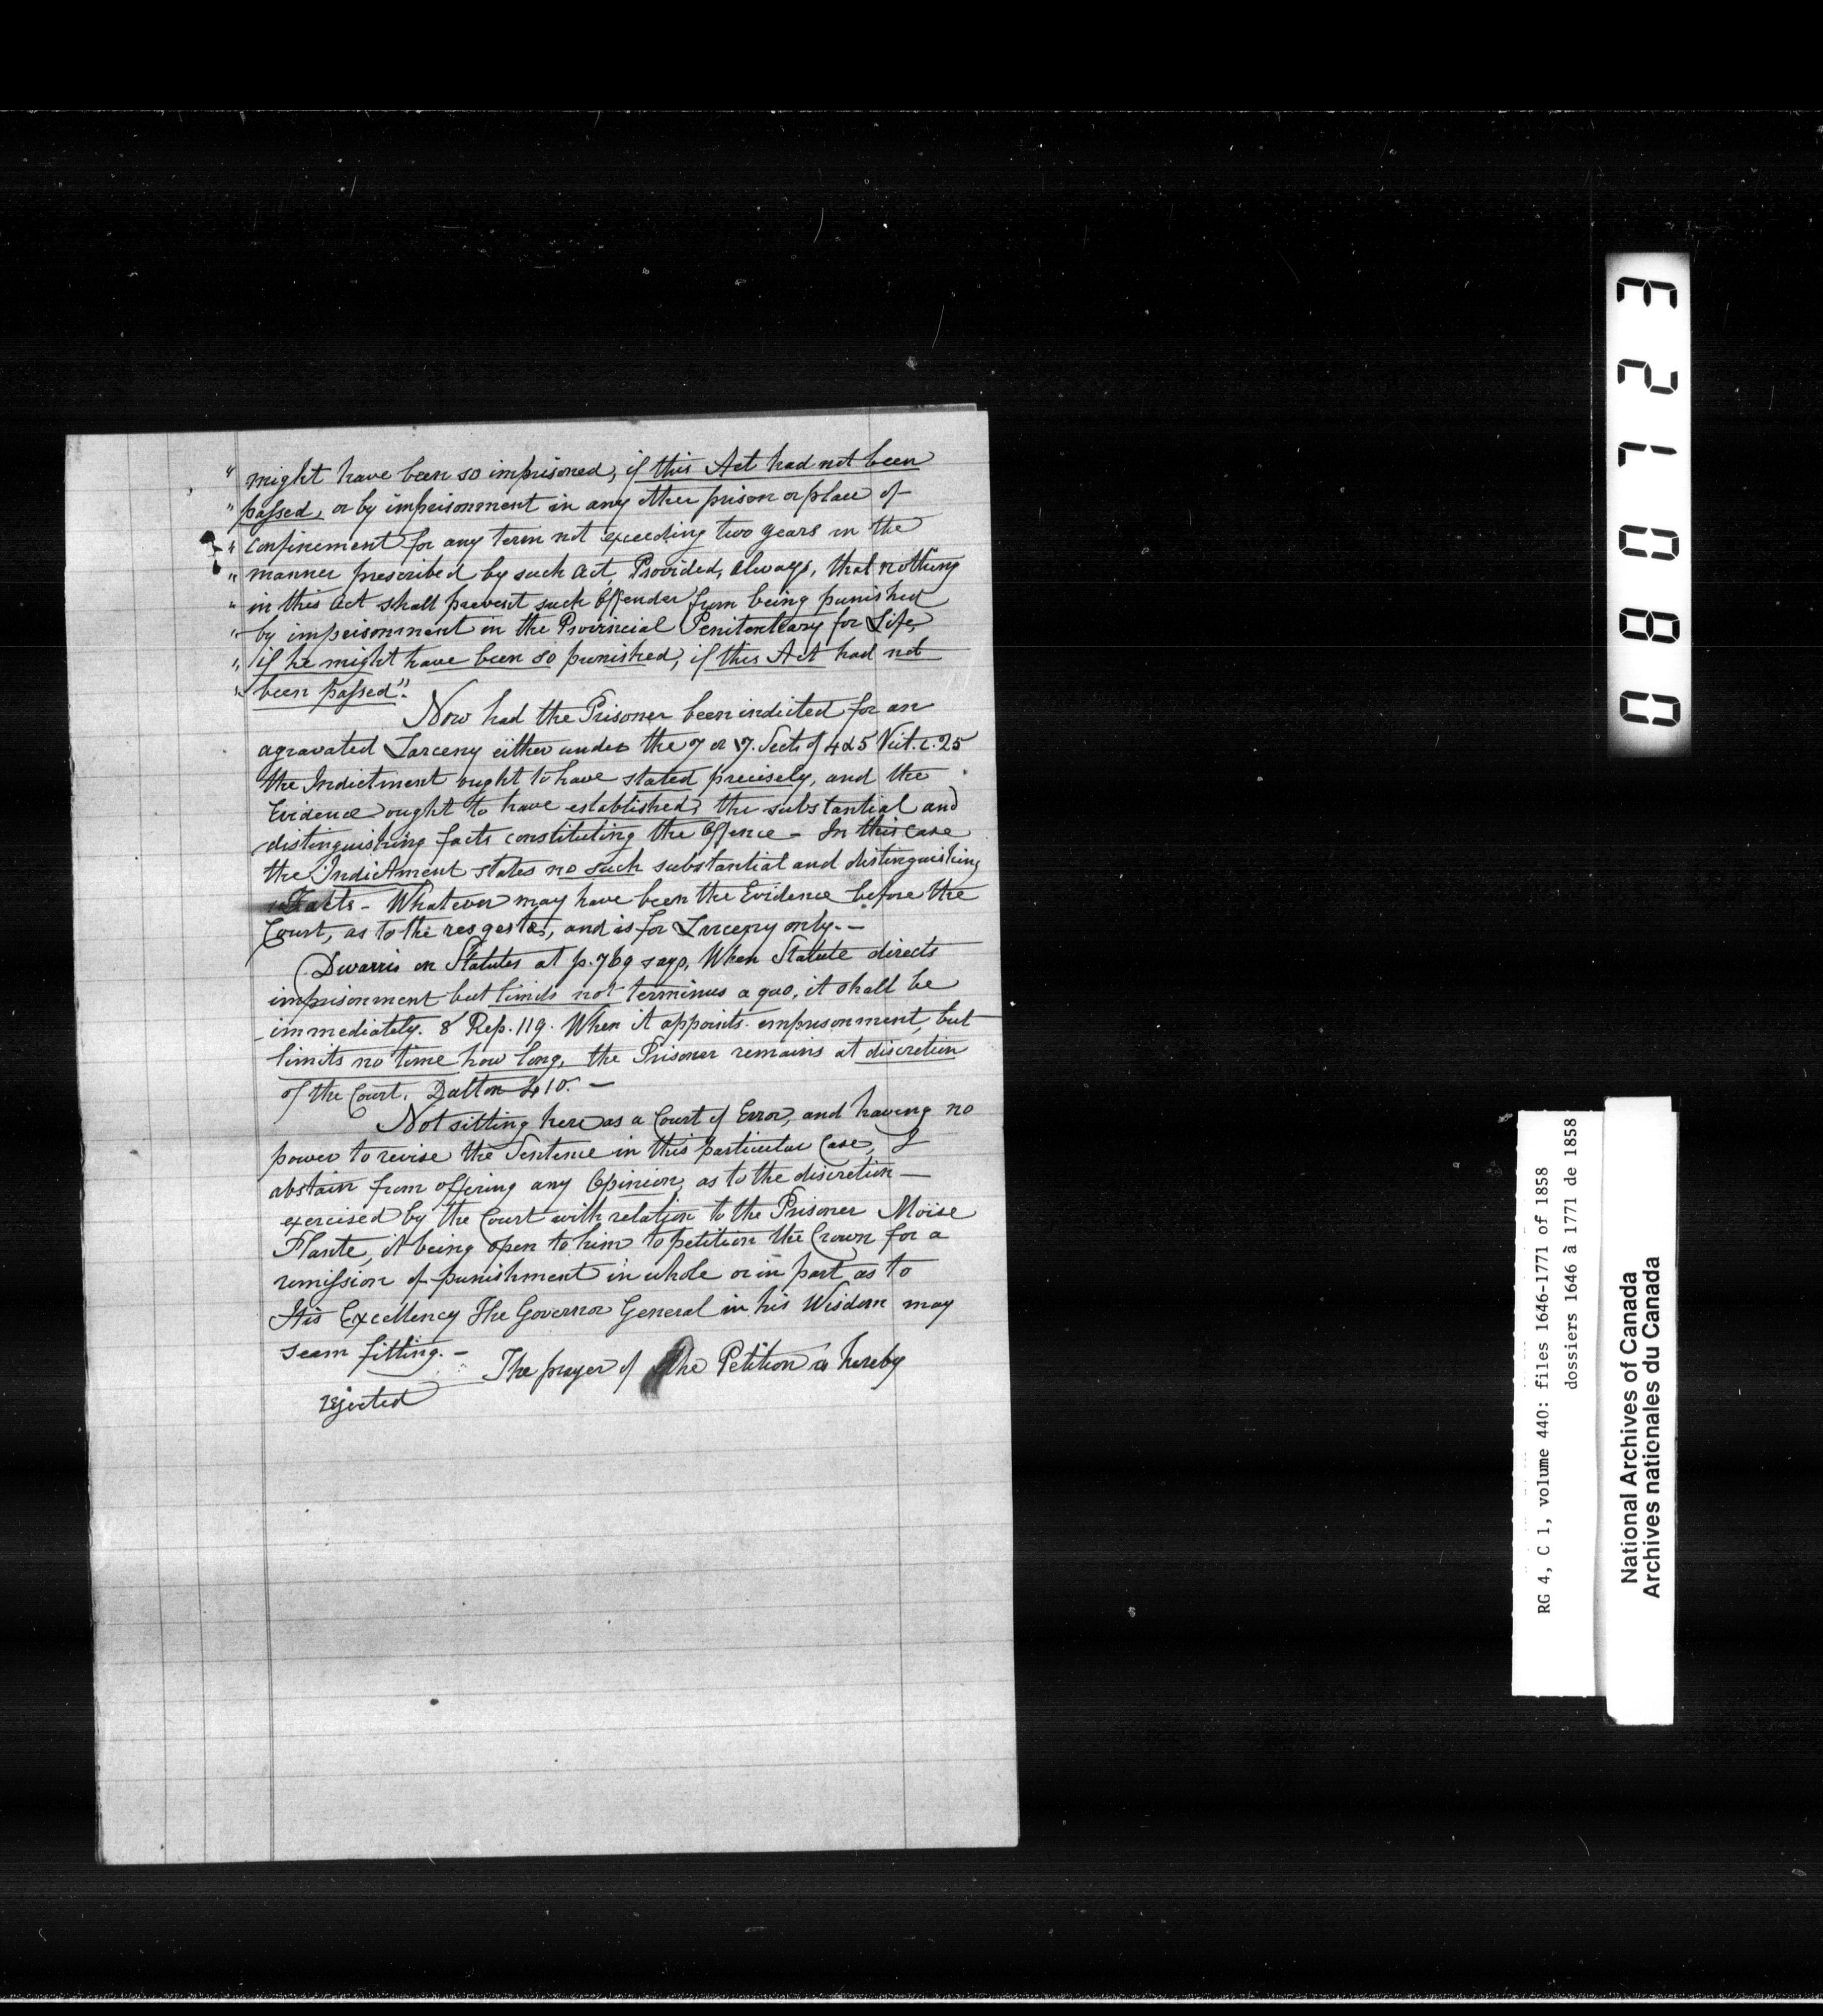 " might have been so imprisoned, if this Act had not been
" passed, or by imprisonment in any other prison or place of
" confinement for any term not exceeding two years in the
" manner prescribed by such act, Provided, always, that nothing
" in this act shall prevent such Offender from being punished
" by imprisonment in the Provincial Penitentiary for Life,
" if he might have been so punished, if this Act had not
" been passed".
Now had the Prisoner been indicted for an
agravated Larceny either under the 7 or 9. Sects of 4 & 5 Vict. c. 25
the Indictment ought to have stated precisely, and the
Evidence ought to have established, the substantial and
distinguishing facts constituting the Offence - In this case
the Indictment states no such substantial and distinguishing
Facts - Whatever may have been the Evidence before the
Court, as to the res gestæ, and is for Larceny only. -
Dwarris on Statutes at p. 769 says, When Statute directs
imprisonment but limits not terminus a quo, it shall be
immediately. 8 Rep. 119. When it appoints imprisonment, but
limits no time how long, the Prisoner remains at discretion
of the Court. Dalton 410. -
Not sitting here as a Court of Error, and having no
power to revise the Sentence in this particular Case, I
abstain from offering any Opinion, as to the discretion
exercised by the Court with relation to the Prisoner Moïse
Plante, it being open to him to petition the Crown for a
remission of punishment in whole or in part as to
His Excellency The Governor General in his Wisdom may
seem fitting. -
The prayer of the Petition is hereby
rejected
080123
RG 4, C 1, volume 440: files 1646-1771 of 1858
dossiers 1646 à 1771 de 1858
National Archives of Canada
Archives nationales du Canada